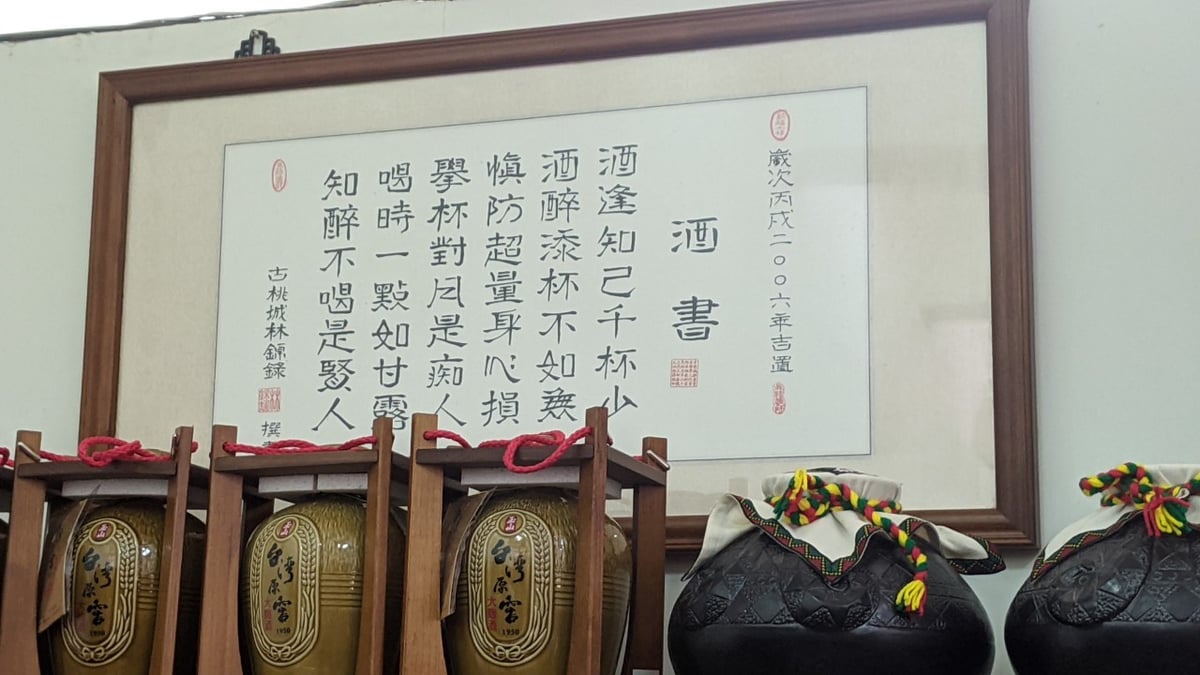 歲次丙戌二00六年吉置
酒書
酒逢知己千杯少
酒醉添杯不如無
慎防超量身心損
舉杯對月是痴人
喝時一點如甘露
知醉不喝是賢人
古桃城林錦錄
撰
玉山
台灣原窖
大麯酒
1950
玉山
台灣原窖
大麯酒
1950
玉山
台灣原窖
大麯酒
1950